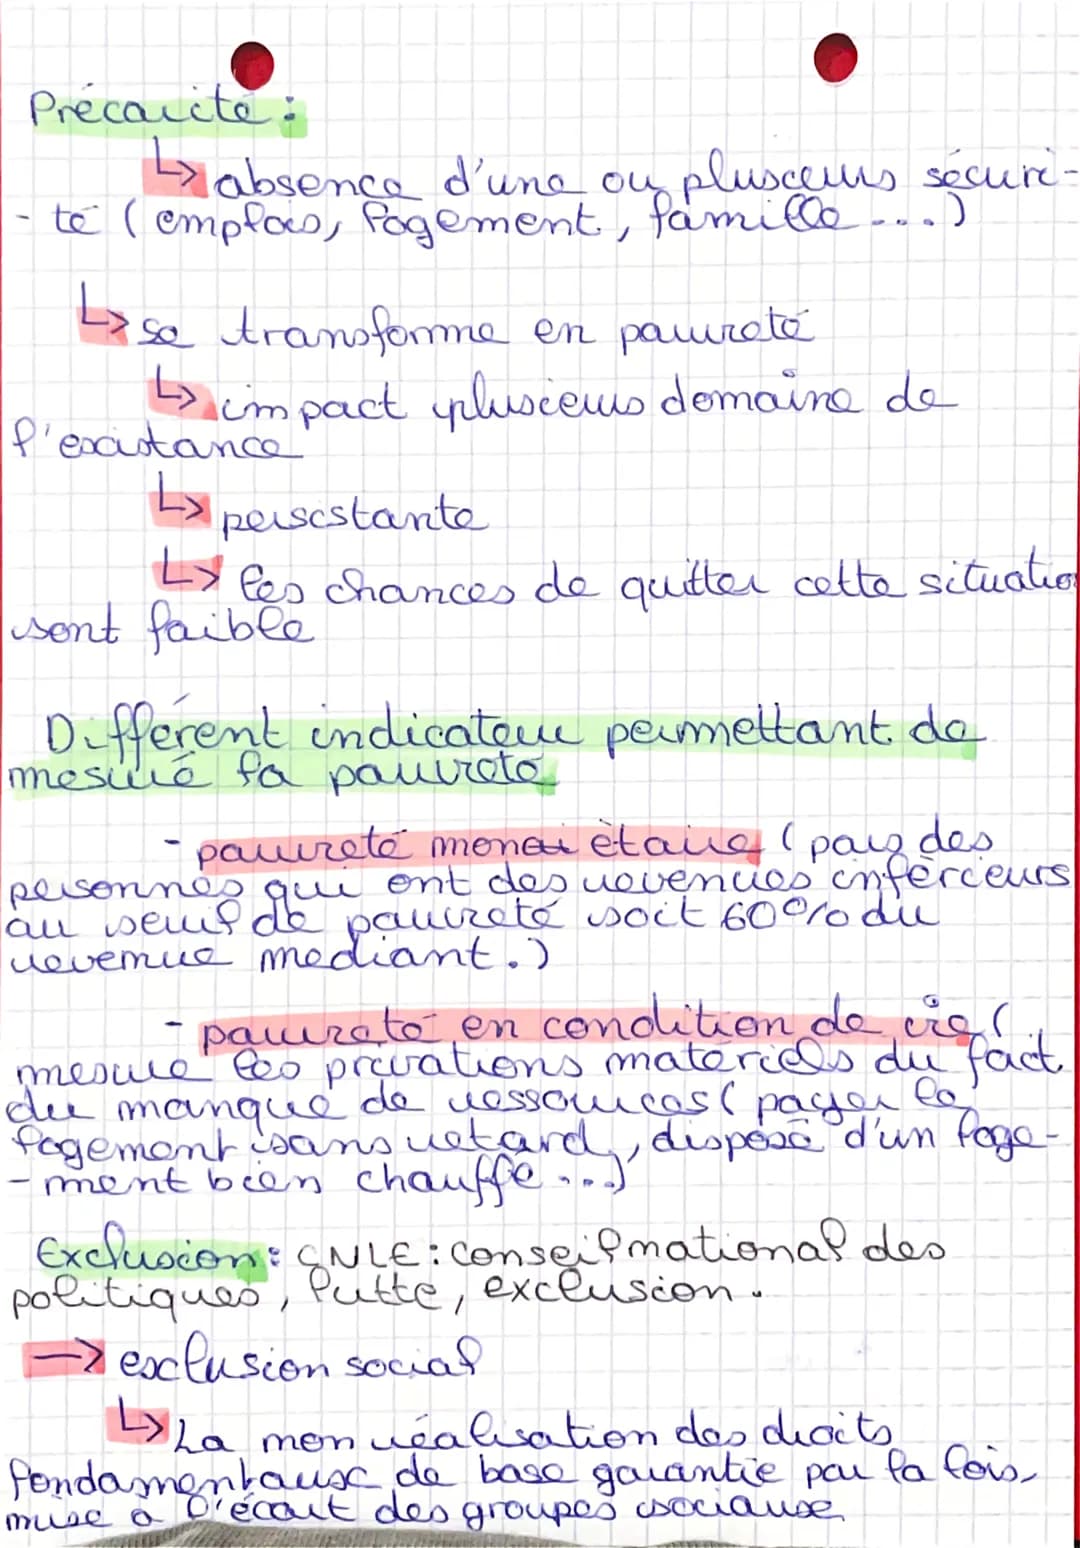 Précarité :
↳ absence d'une ou plusieurs sécuri-
- té ( emplois, logement, famille ... )
↳ se transforme en pauvreté
↳ impact plusieurs domaine de
l'existance
↳ persistante
↳ les chances de quitter cette situation
sont faible
Différent indicateur permettant de
mesuré la pauvreté
- pauvreté monaiètaire ( pars des
personnes qui ont des revenues infèrieurs
au seuil de pauvreté soit 60% du
revenue mediant. )
- pauvreté en condition de vie (
mesure les privations matériels du fait
du manque de ressources ( payer le
logement sans retard, disposé d'un loge-
- ment bien chauffe ... )
Exclusion : CNLE : conseil national des
politiques, lutte, exclusion.
→ exclusion social
↳ La non réalisation des droits
fondamentaux de base garantie par la lois,
mise a l'écart des groupes sociause